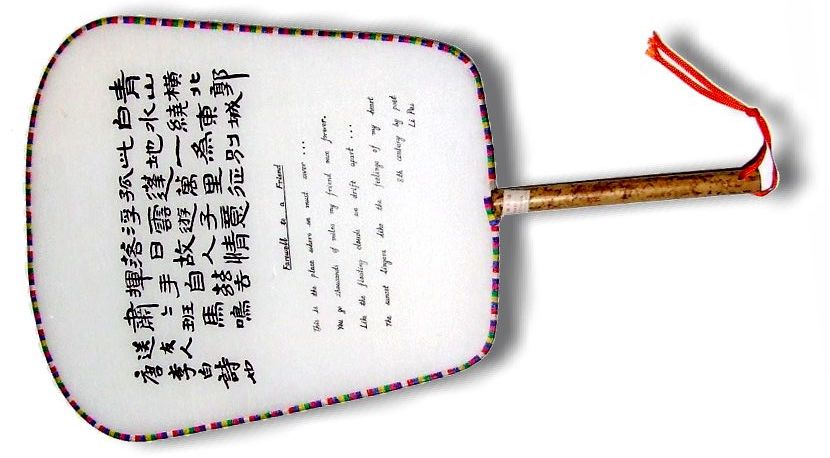 青山橫北郭
白水繞東城
此地一為別
孤蓬萬里征
浮雲遊子意
落日故人情
揮手自茲去
蕭〻班馬鳴
送友人
唐李白詩
Farewell to a Friend
This is the place where we must sever ...
You go thousands of miles my friend once forever.
Like the floating clouds we drift apart ...
The sunset lingers like the feelings of my heart
8th century by poet
Li Pai